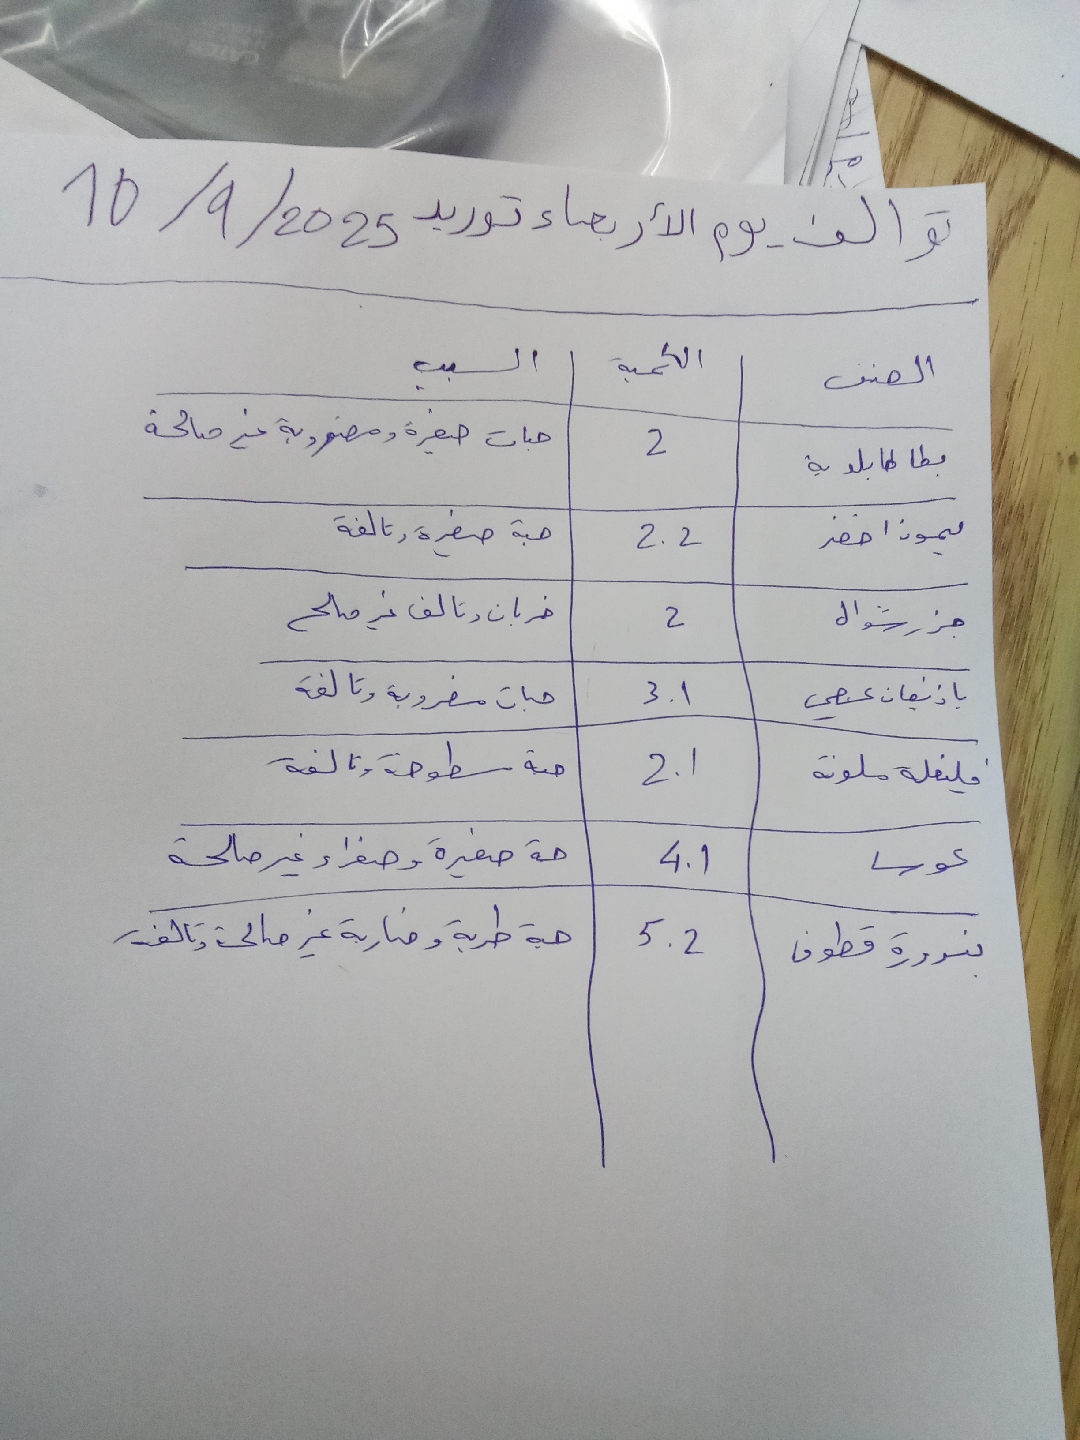 توالف يوم الأربعاء توريد 10/9/2025
الصنف الكمية السبب
بطاطا بلدية 2 حبات صغيرة ومضروبة غير صالحة
ليمون اخضر 2.2 حبة صغيرة وتالفة
جزر شوال 2 خربان وتالف غير صالح
باذنجان عجمي 3.1 حبات مضروبة وتالفة
فليفلة ملونة 2.1 حبة سطوحة وتالفة
كوسا 4.1 حبة صغيرة وصفراء غير صالحة
بندورة قطوف 5.2 حبة طرية وضاربة غير صالحة وتالفة